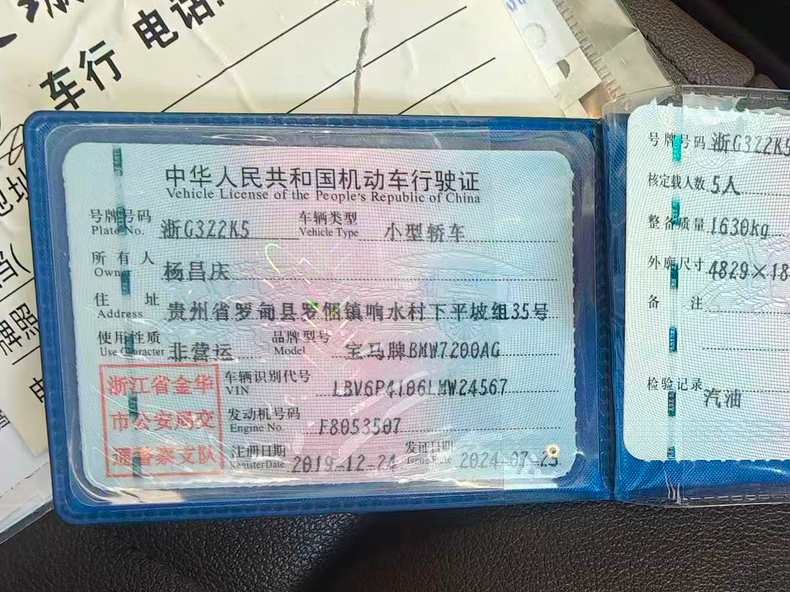 车行
电话
中华人民共和国机动车行驶证
Vehicle License of the People's Republic of China
号牌号码 浙G3Z2K5 车辆类型 小型轿车
Plate No. Vehicle Type
所有人 杨昌庆
Owner
住址 贵州省罗甸县罗悃镇响水村下平坡组35号
Address
使用性质 非营运 品牌型号 宝马牌BMW7200AG
Use Character Model
车辆识别代号 LBV6P4106LMW24567
VIN
发动机号码 F8053507
Engine No.
注册日期 2019-12-24 发证日期 2024-07-23
Register Date Issue Date
浙江省金华
市公安局交
通警察支队
号牌号码 浙G3Z2K5
核定载人数 5人
整备质量 1630kg
外廓尺寸 4829×18
备注
检验记录 汽油